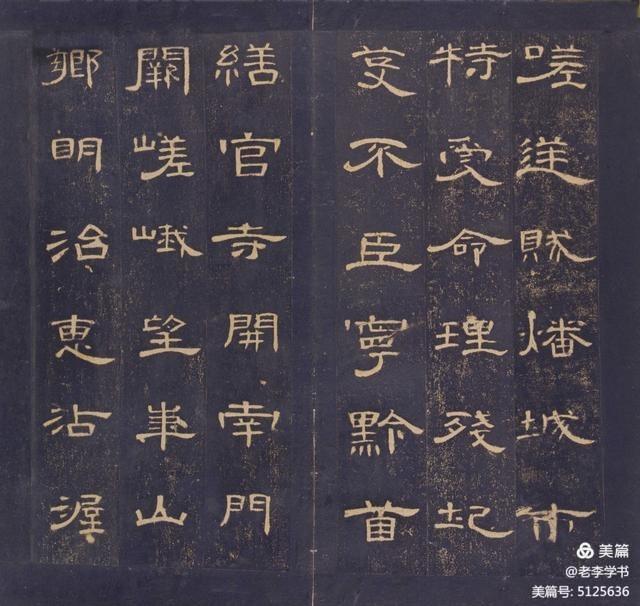 嗟逆賊燔城市
特受命理殘圮
芟不臣寧黔首
繕官寺開南門
闕嵯峨望華山
鄉明治惠沾渥
美篇
@老李学书
美篇号: 5125636